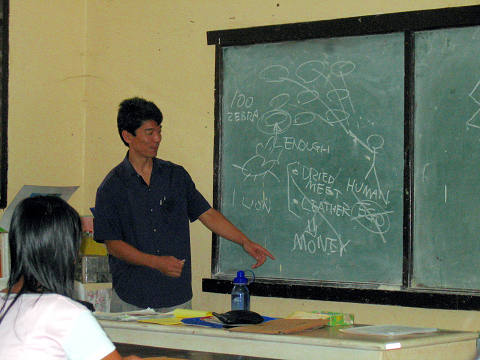 100
ZEBRA
ENOUGH
1 LION
DRIED/
MEET
HUMAN
LEATHER
MONEY